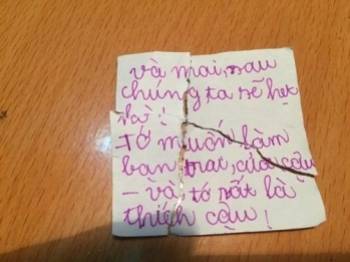 và mai, sau
chúng ta sẽ hẹt
hà!
tớ muốn làm
bạn trai, của cậu
– và tớ rất là
thích cậu!